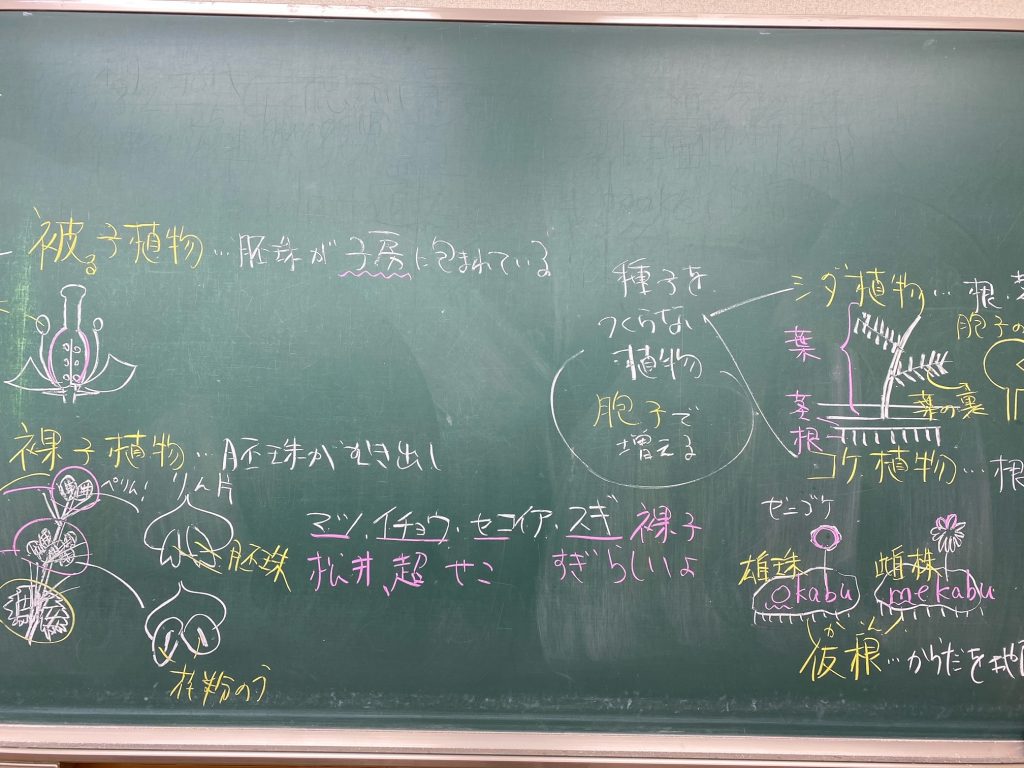 被る子植物…胚珠が子房に包まれている
裸子植物…胚珠がむき出し
ぺりん!
りん片
胚珠
花粉のう
マツ、イチョウ・セコイア・スギ 裸子
松井、超 せこ すぎ らしいよ
種子を
つくらない
植物
胞子で
増える
シダ植物…根・茎
胞子の
葉
茎
根
葉の裏
コケ植物…根
ゼニゴケ
雄株
okabu
雌株
mekabu
かこん
仮根…からだを地面